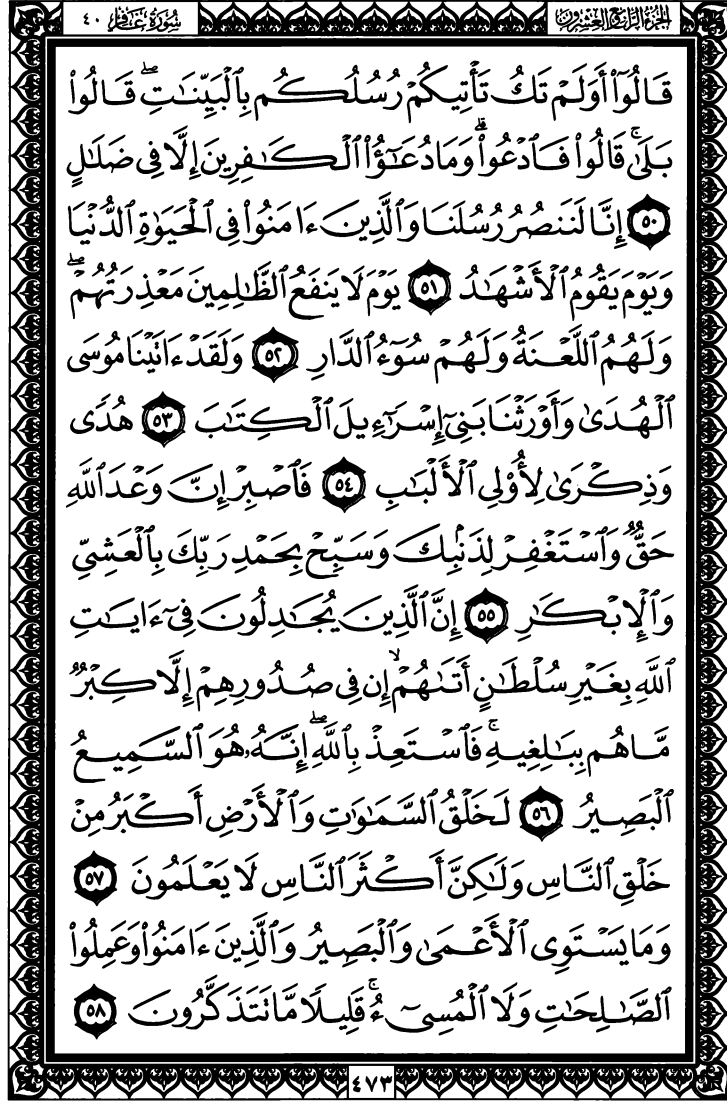 الجزء الرابع والعشرون سورة غافر ٤٠
قَالُوٓا۟ أَوَلَمْ تَكُ تَأْتِيكُمْ رُسُلُكُم بِٱلْبَيِّنَـٰتِ ۖ قَالُوا۟
بَلَىٰ ۚ قَالُوا۟ فَٱدْعُوا۟ ۗ وَمَا دُعَـٰٓؤُا۟ ٱلْكَـٰفِرِينَ إِلَّا فِى ضَلَـٰلٍ
٥٠ إِنَّا لَنَنصُرُ رُسُلَنَا وَٱلَّذِينَ ءَامَنُوا۟ فِى ٱلْحَيَوٰةِ ٱلدُّنْيَا
وَيَوْمَ يَقُومُ ٱلْأَشْهَـٰدُ ٥١ يَوْمَ لَا يَنفَعُ ٱلظَّـٰلِمِينَ مَعْذِرَتُهُمْ ۖ
وَلَهُمُ ٱللَّعْنَةُ وَلَهُمْ سُوٓءُ ٱلدَّارِ ٥٢ وَلَقَدْ ءَاتَيْنَا مُوسَى
ٱلْهُدَىٰ وَأَوْرَثْنَا بَنِىٓ إِسْرَٰٓءِيلَ ٱلْكِتَـٰبَ ٥٣ هُدًى
وَذِكْرَىٰ لِأُو۟لِى ٱلْأَلْبَـٰبِ ٥٤ فَٱصْبِرْ إِنَّ وَعْدَ ٱللَّهِ
حَقٌّ وَٱسْتَغْفِرْ لِذَنۢبِكَ وَسَبِّحْ بِحَمْدِ رَبِّكَ بِٱلْعَشِىِّ
وَٱلْإِبْكَـٰرِ ٥٥ إِنَّ ٱلَّذِينَ يُجَـٰدِلُونَ فِىٓ ءَايَـٰتِ
ٱللَّهِ بِغَيْرِ سُلْطَـٰنٍ أَتَىٰهُمْ ۙ إِن فِى صُدُورِهِمْ إِلَّا كِبْرٌ
مَّا هُم بِبَـٰلِغِيهِ ۚ فَٱسْتَعِذْ بِٱللَّهِ ۖ إِنَّهُۥ هُوَ ٱلسَّمِيعُ
ٱلْبَصِيرُ ٥٦ لَخَلْقُ ٱلسَّمَـٰوَٰتِ وَٱلْأَرْضِ أَكْبَرُ مِنْ
خَلْقِ ٱلنَّاسِ وَلَـٰكِنَّ أَكْثَرَ ٱلنَّاسِ لَا يَعْلَمُونَ ٥٧
وَمَا يَسْتَوِى ٱلْأَعْمَىٰ وَٱلْبَصِيرُ وَٱلَّذِينَ ءَامَنُوا۟ وَعَمِلُوا۟
ٱلصَّـٰلِحَـٰتِ وَلَا ٱلْمُسِىٓءُ ۚ قَلِيلًا مَّا تَتَذَكَّرُونَ ٥٨
٤٧٣